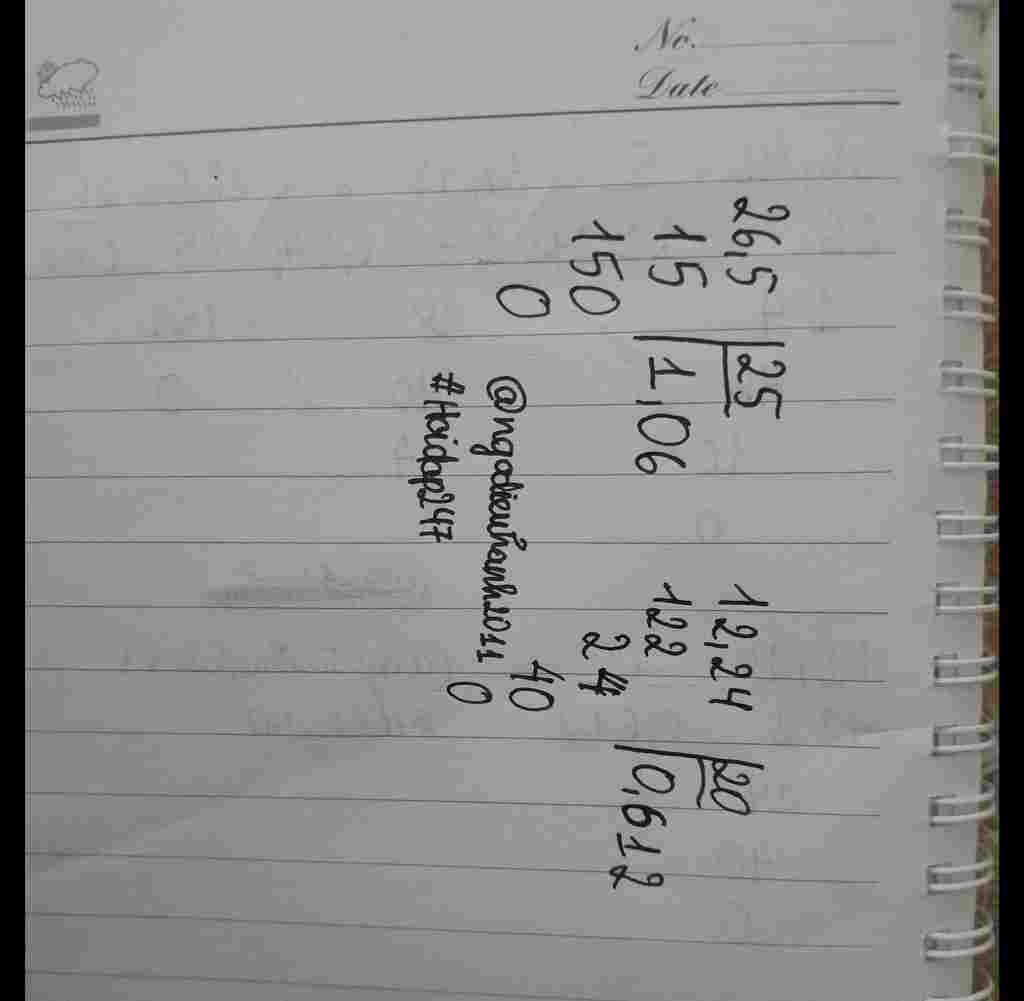 No.
Date
26,5 25
15 1,06
150
0
12,24 20
122 0,612
24
40
0
@ngodieuhanh2011
#Hoidap247